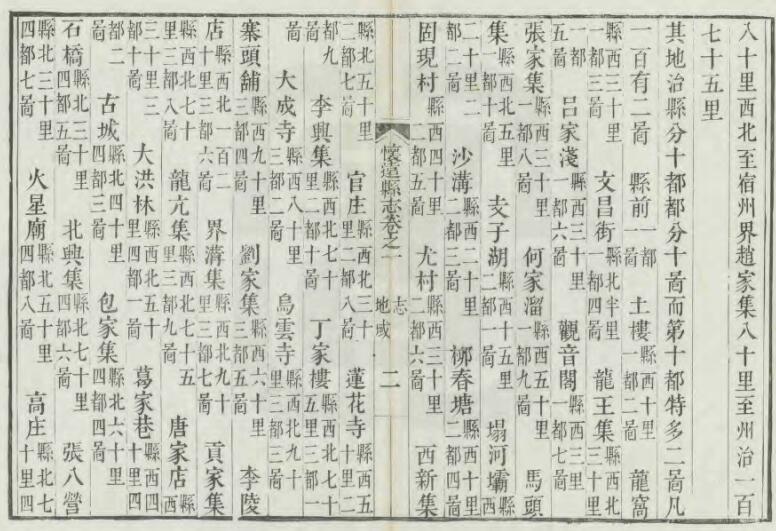 八十里西北至宿州界趙家集八十里至州治一百
七十五里
其地治縣分十都都分十啚而第十都特多二啚凡
一百有二啚 縣前一都一啚 土樓縣西十里一都二啚 龍窩
縣西三十里一都三啚 文昌街縣北半里一都四啚 龍王集縣西北三十里
一都五啚 呂家淺縣西三十里一都六啚 觀音閣縣西三里一都七啚
張家集縣西三十里一都八啚 何家溜縣西五十里一都九啚 馬頭
集縣西北五里一都十啚 支子湖縣西十五里二都一啚 塌河壩縣西
二十里二都二啚 沙溝縣西二十里二都三啚 柳春塘縣西十里二都四啚
固現村縣西四十里二都五啚 尤村縣西三十里二都六啚 西新集
懷遠縣志卷之一 地域志 二
縣北五十里二都七啚 官庄縣北三十里二都八啚 蓮花寺縣西五十里二
都九啚 李興集縣西北七十里二都十啚 丁家樓縣西北七十五里三都一
啚 大成寺縣西八十里三都二啚 烏雲寺縣西北九十里三都三啚
寨頭舖縣西九十里三都四啚 劉家集縣西六十里三都五啚 李陵
店縣西北一百二十里三都六啚 界溝集縣西北九十里三都七啚 貢家集
縣西北七十里三都八啚 龍亢集縣西北七十五里三都九啚 唐家店縣西
三十里三都十啚 大洪林縣西北五十里四都一啚 葛家巷縣西四十里四
都二啚 古城縣北四十里四都三啚 包家集縣北六十里四都四啚
石橋縣北三十里四都五啚 北興集縣北七十里四都六啚 張八營
縣北三十里四都七啚 火星廟縣北五十里四都八啚 高庄縣北七十里四